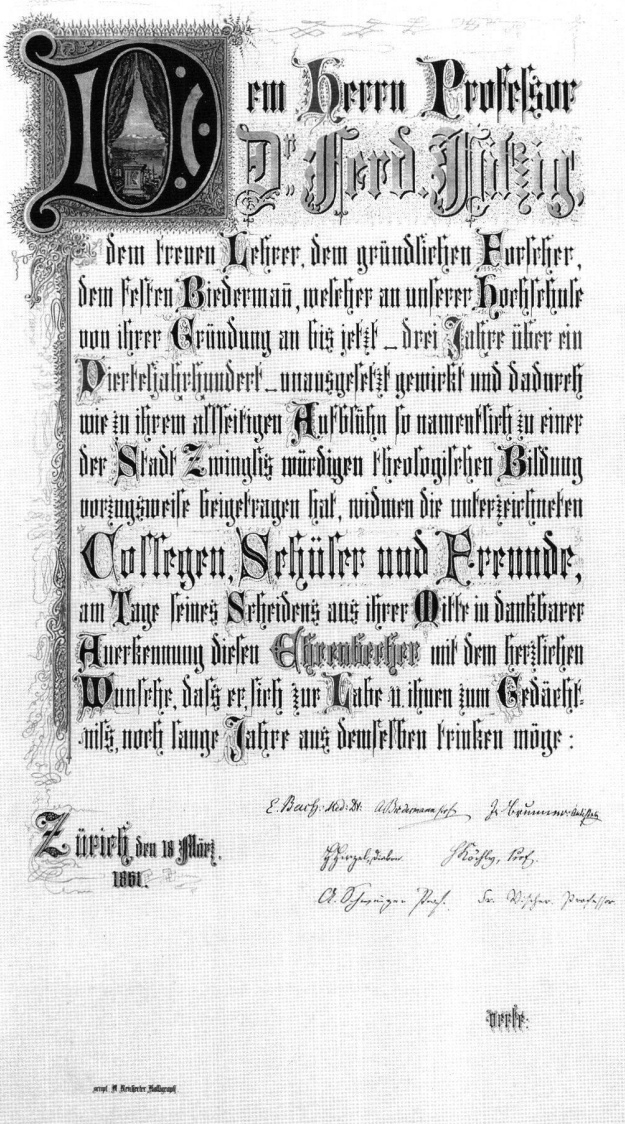 Dem Herrn Professor
Dr. Ferd. Hitzig,
dem treuen Lehrer, dem gründlichen Forscher,
dem festen Biedermañ, welcher an unserer Hochschule
von ihrer Gründung an bis jetzt – drei Jahre über ein
Vierteljahrhundert – unausgesetzt gewirkt und dadurch
wie zu ihrem allseitigen Aufblühn so namentlich zu einer
der Stadt Zwinglis würdigen theologischen Bildung
vorzugsweise beigetragen hat, widmen die unterzeichneten
Collegen, Schüler und Freunde,
am Tage seines Scheidens aus ihrer Mitte in dankbarer
Anerkennung diesen Ehrenbecher mit dem herzlichen
Wunsche, dass er, sich zur Labe u. ihnen zum Gedächt-
niss, noch lange Jahre aus demselben trinken möge:
E. Bach, Med: Dr. A. Biedermann
Brunner
H Hirzel, H Köchly, Prof.
A. Schweizer Prof. Fr. Vischer. Professor
Zürich, den 18 März,
1861.
verte:
script. Kalligraph